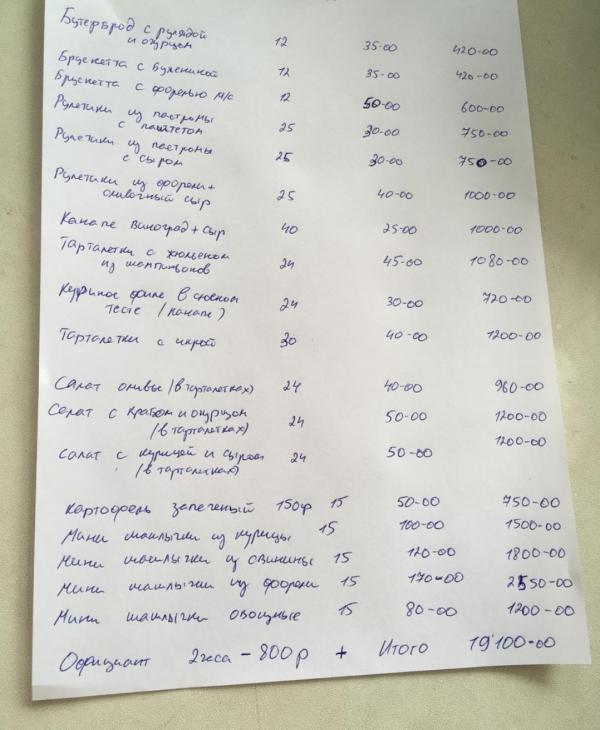 Бутерброд с рулядой
и огурцом 12 35-00 420-00
Брускетта с бужениной 12 35-00 420-00
Брускетта с форелью м/с 12 50-00 600-00
Рулетики из пастромы
с паштетом 25 30-00 750-00
Рулетики из пастромы
с сыром 25 30-00 750-00
Рулетики из форели+
сливочный сыр 25 40-00 1000-00
Канапе виноград+сыр 40 25-00 1000-00
Тарталетки с жюльеном
из шампиньонов 24 45-00 1080-00
Куриное филе в слоеном
тесте /канапе) 24 30-00 720-00
Тарталетки с икрой 30 40-00 1200-00
Салат оливье /в тарталетках) 24 40-00 960-00
Салат с крабом и огурцом
/в тарталетках) 24 50-00 1200-00
Салат с курицей и сыром
/в тарталетках) 24 50-00 1200-00
Картофель запеченый 150гр 15 50-00 750-00
Мини шашлычки из курицы 15 100-00 1500-00
Мини шашлычки из свинины 15 120-00 1800-00
Мини шашлычки из форели 15 170-00 2550-00
Мини шашлычки овощные 15 80-00 1200-00
Официант 2 часа - 800 р + Итого 19100-00